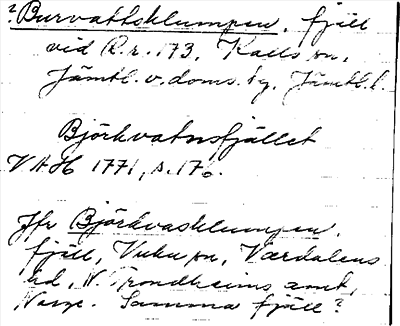 ? Burvattsklumpen, fjäll
vid R.r. 173, Kalls sn,
Jämtl. v. doms. tg, Jämtl. l.
Björkvatnsfjället
VAH 1771, s. 176.
Jfr Björkvasklumpen,
fjäll, Vuku sn, Værdalens
tld, N. Trondheims amt,
Norge. Samma fjäll?